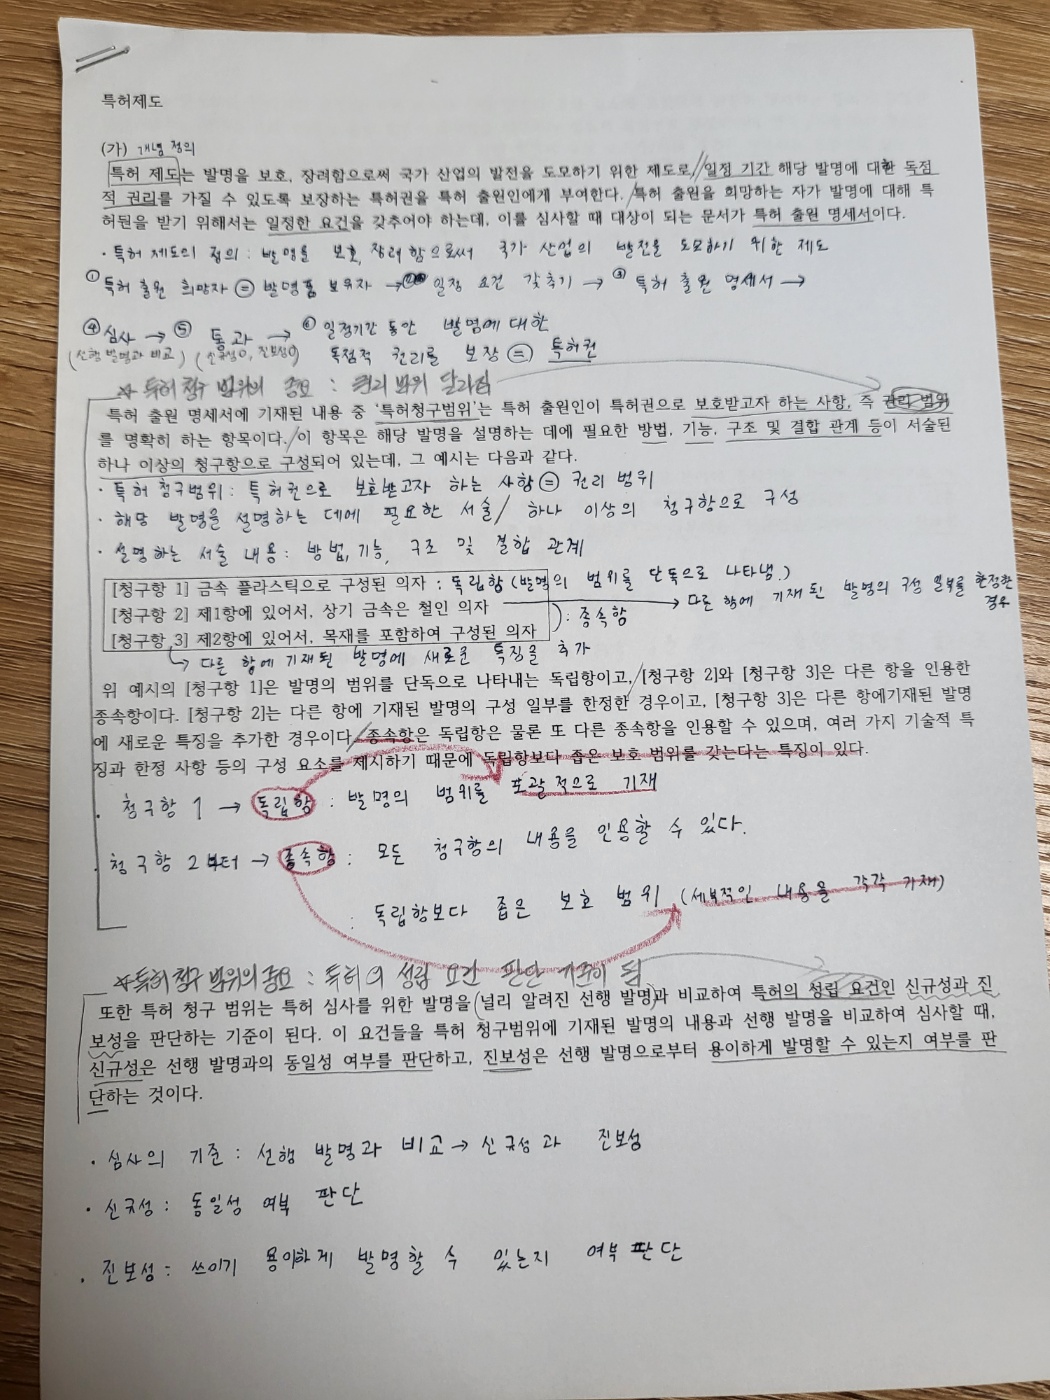 특허제도
(가) 개념 정의
특허 제도는 발명을 보호, 장려함으로써 국가 산업의 발전을 도모하기 위한 제도로/일정 기간 해당 발명에 대한 독점
적 권리를 가질 수 있도록 보장하는 특허권을 특허 출원인에게 부여한다./특허 출원을 희망하는 자가 발명에 대해 특
허권을 받기 위해서는 일정한 요건을 갖추어야 하는데, 이를 심사할 때 대상이 되는 문서가 특허 출원 명세서이다.
· 특허 제도의 정의 : 발명을 보호, 장려함으로써 국가 산업의 발전을 도모하기 위한 제도
① 특허 출원 희망자 = 발명품 보유자 → ② 일정 요건 갖추기 → ③ 특허 출원 명세서 →
④ 심사 → ⑤ 통과 → ⑥ 일정기간 동안 발명에 대한
(선행 발명과 비교) (신규성O, 진보성O) 독점적 권리를 보장 = 특허권
☆ 특허 청구 범위의 중요 : 권리 범위 달라짐
특허 출원 명세서에 기재된 내용 중 '특허청구범위'는 특허 출원인이 특허권으로 보호받고자 하는 사항, 즉 권리 범위
를 명확히 하는 항목이다./이 항목은 해당 발명을 설명하는 데에 필요한 방법, 기능, 구조 및 결합 관계 등이 서술된
하나 이상의 청구항으로 구성되어 있는데, 그 예시는 다음과 같다.
· 특허 청구범위 : 특허권으로 보호받고자 하는 사항 = 권리 범위
· 해당 발명을 설명하는 데에 필요한 서술/ 하나 이상의 청구항으로 구성
· 설명하는 서술 내용 : 방법, 기능, 구조 및 결합 관계
[청구항 1] 금속 플라스틱으로 구성된 의자 : 독립항 (발명의 범위를 단독으로 나타냄.)
[청구항 2] 제1항에 있어서, 상기 금속은 철인 의자 → 다른 항에 기재된 발명의 구성 일부를 한정한
경우
) : 종속항
[청구항 3] 제2항에 있어서, 목재를 포함하여 구성된 의자
↳ 다른 항에 기재된 발명에 새로운 특징을 추가
위 예시의 [청구항 1]은 발명의 범위를 단독으로 나타내는 독립항이고,/[청구항 2]와 [청구항 3]은 다른 항을 인용한
종속항이다. [청구항 2]는 다른 항에 기재된 발명의 구성 일부를 한정한 경우이고, [청구항 3]은 다른 항에기재된 발명
에 새로운 특징을 추가한 경우이다./종속항은 독립항은 물론 또 다른 종속항을 인용할 수 있으며, 여러 가지 기술적 특
징과 한정 사항 등의 구성 요소를 제시하기 때문에 독립항보다 좁은 보호 범위를 갖는다는 특징이 있다.
· 청구항 1 → 독립항 : 발명의 범위를 포괄적으로 기재
· 청구항 2부터 → 종속항 : 모든 청구항의 내용을 인용할 수 있다.
: 독립항보다 좁은 보호 범위 (세부적인 내용을 각각 기재)
☆ 특허 청구 범위의 중요 : 특허의 성립 요건 판단 기준이 됨
또한 특허 청구 범위는 특허 심사를 위한 발명을(널리 알려진 선행 발명)과 비교하여 특허의 성립 요건인 신규성과 진
보성을 판단하는 기준이 된다. 이 요건들을 특허 청구범위에 기재된 발명의 내용과 선행 발명을 비교하여 심사할 때,
신규성은 선행 발명과의 동일성 여부를 판단하고, 진보성은 선행 발명으로부터 용이하게 발명할 수 있는지 여부를 판
단하는 것이다.
· 심사의 기준 : 선행 발명과 비교 → 신규성과 진보성
· 신규성 : 동일성 여부 판단
· 진보성 : 쓰이기 용이하게 발명할 수 있는지 여부 판단